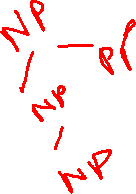 NP
PP
NP
NP